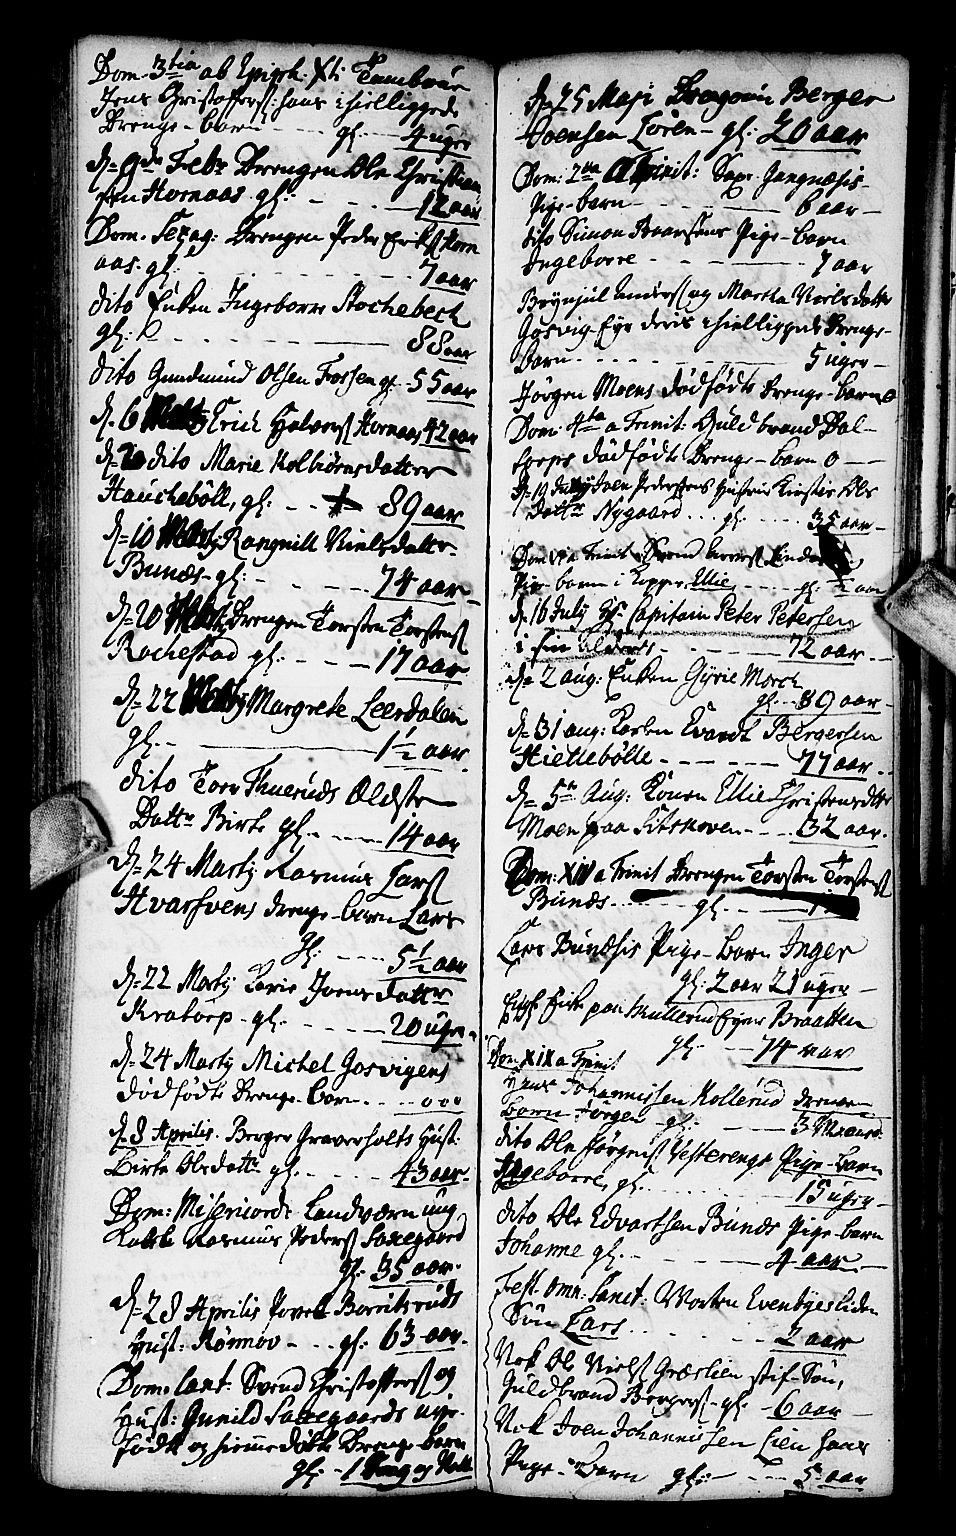 Dom. 3tia ab Epiph. Xti Tambour
Jens Christoffers: hans ihielliggede
Drenge-barn gl. 4 uger
d. 9de Febr. Drengen Ole Christian
sen Hornaas gl. 12 aar
Dom. Sexag: Drengen Peder Erikss Horn
aas. gl. 7 aar
dito Enken Ingeborre Stochebech
gl. 88 aar
dito Gundmund Olsen Fossen gl. 55 aar
d. 6 Martij Erich Halvors Hornaas 42 aar
d. dito Marie Kolbiörnsdatter
Hauchebøll, gl. 89 aar
d. 10 Martij Rangnill Nielsdatter
Bunæs gl. 74 aar
d. 20 Martij Drengen Torsten Torstens
Rochestad gl. 17 aar
d. 22 Martij Margrete Leerdalen
gl. 1½ aar
dito Tore Thueruds Ældste
Datter Birte gl. 14 aar
d. 24 Martij Rasmus Lars
Hvarsvens drenge-barn Lars
gl. 5½ aar
d. 22 Martij Karie Joensdatter
Kratorp gl. 20 uger
d. 24 Martij Michel Gosvigens
dödfödte Drenge-barn 000
d. 8 Aprilis. Berger Graverholts Hust.
Birte Olsdatter gl. 43 aar
Dom: Misericord: Landværn ung
Karl Rasmus Peders Saxegaard
gl. 35 aar
d. 28 Aprilis Povel Borritsruds
Hust: Rønnov gl. 63 aar
Dom. Cant: Svend Christoffers og
Hust: Gunild Saxegaards nye-
födte og hiemedöbte Drenge-barn
gl. 1 Dag og Natt
d. 25 Maji Dragoun Berger
Joensen Lören gl. 20 aar
Dom: 2da a Trinit: Saxe Jangnæsis
Pige-barn 6 aar
dito Simon Baarsens Pige-barn
Ingeborre 7 aar
Brynjul Anders og Martha Nielsdatter
Gosvig-Eye deris ihielliggede Drenge-
barn 5 uger
Jörgen Moens dödfödte Drenge-barn 0
Dom. 4ta a Trinit: Guldbrand Dal-
dödfödte Drenge-barn 0
d. 19 July Joen Pedersens Hustrue Kirstie Ols
datter Nygaard gl. 35 aar
Dom a Trinit Svend
Pige-barn i Kopper Ellie gl. ½ aar
d. 16 July Hr. Capitain Peter Petersen
i sin Alders 72 aar
d. 2 aug: Enken Gyrie Morch
gl. 89 aar
d. 31 aug: Karlen Evardt Bergersen
Hiellebölle 77 aar
d. 5te Aug: Konen Ellie Christensdatter
Moen paa Sitskoven 32 aar
Dom: XIV a Trinit Drengen Torsten Torstens
Bunæs gl.
Lars Bunæsis Pige-barn Inger
gl. 2 aar 21 uger
Enke paa Mullerud Eyer Braatten
gl. 74 aar
Dom XIX a Trinit
Hans Johannissen Kollerud drenge
barn Jörgen gl. 3 Maaned
dito Ole Jörgens Vesterengs Pige-barn
Ingeborre, gl. 15 uger
dito Ole Edvartsen Bunæs Pige-barn
Johanne gl. 4 aar
Fest. Omn. Sanct. Morten Evenbyes liden
Sön Lars 2 aar
Nok Ole Niels Græslien stif-Sön,
Guldbrand Bergers gl. 6 aar
Nok Joen Johannissen Lien hans
Pige-Barn gl. 5 aar